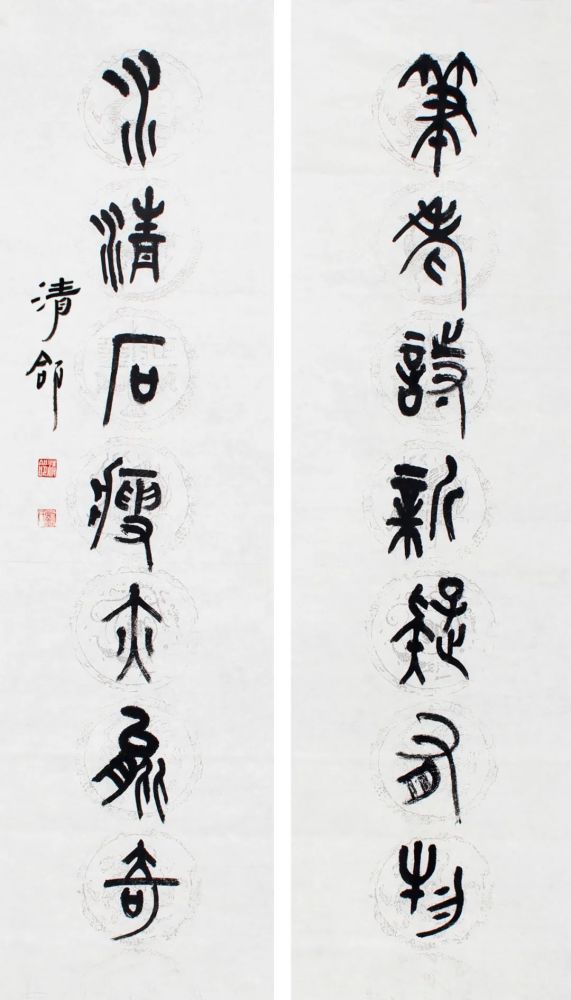 筆老詩新疑有物
水清石瘦亦能奇
清郃